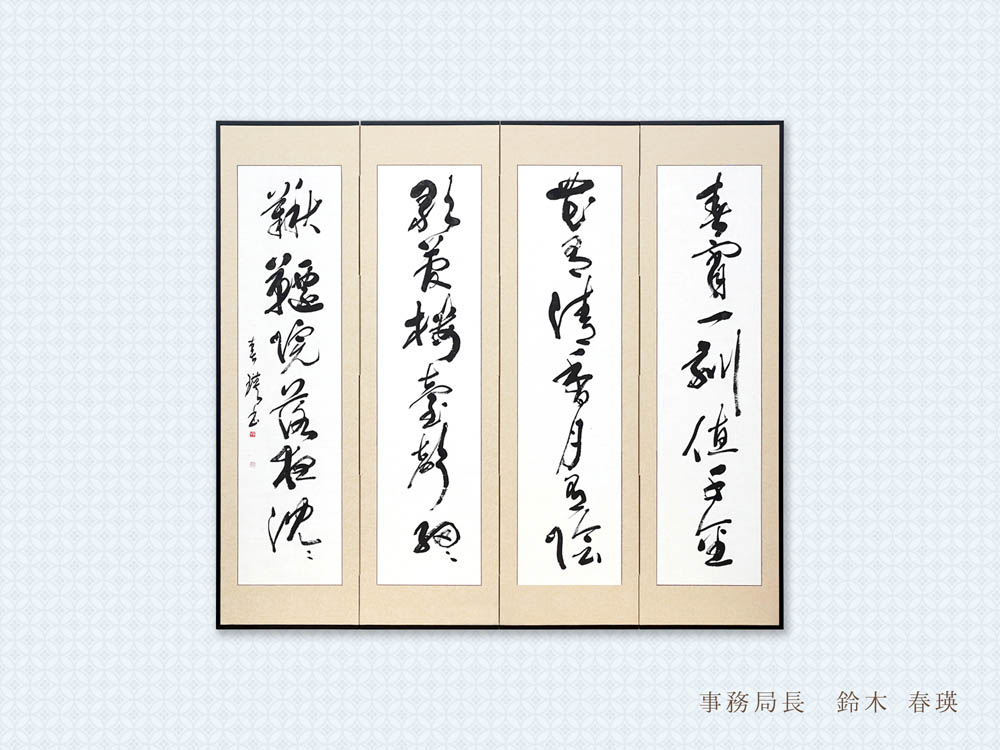 春宵一刻値千金
花有清香月有陰
歌管樓臺聲細〻
鞦韆院落夜沈〻
春瑛書
事務局長　鈴木 春瑛